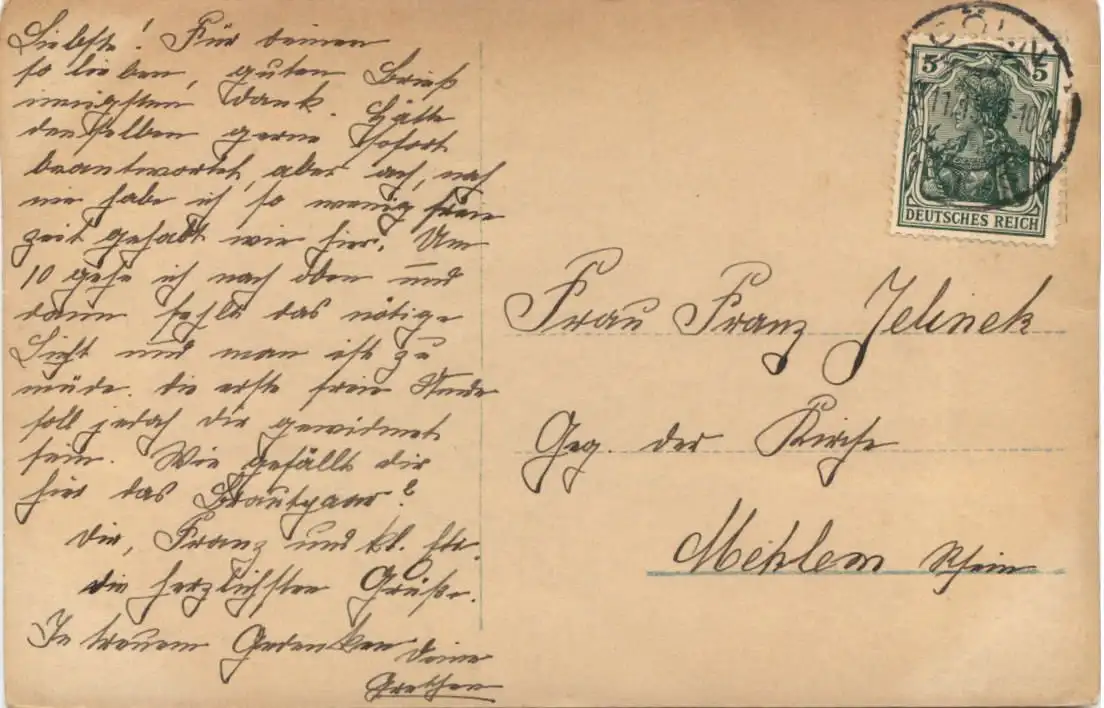 Liebste! Für deinen
so lieben, guten Brief
innigsten Dank. Hätte
denselben gerne sofort
beantwortet, aber ach, noch
nie habe ich so wenig freie
zeit gehabt wie hier. Um
10 gehe ich nach oben und
dann fehlt das nötige
Licht und man ist zu
müde. die erste freie Stunde
soll jedoch dir gewidmet
sein. Wie gefällt dir
hier das Brautpaar?
dir, Franz und kl.
die herzlichsten Grüße.
In treuem Gedenken
deine
Gretchen
CÖLN
5 5
DEUTSCHES REICH
Frau Franz Jelinek
Geg. der Kirche
Mehlem Rhein